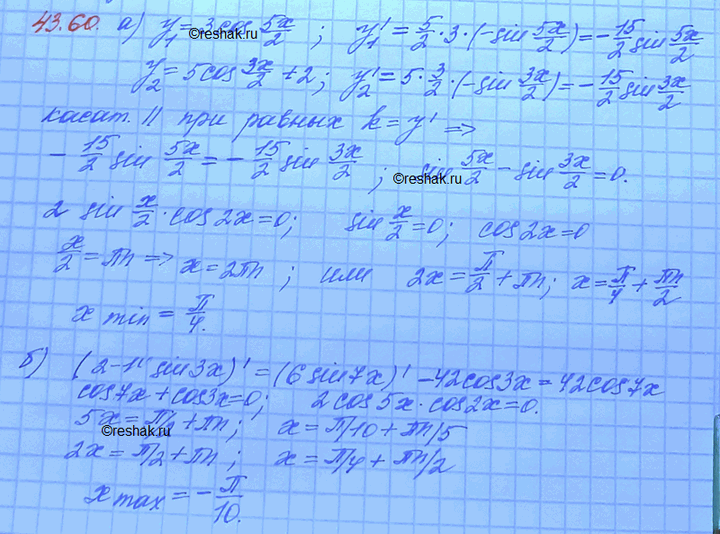 43.60. а) y₁ = 3cos 5x/2 ; y₁' = 5/2 · 3 · (-sin 5x/2) = -15/2 sin 5x/2
©reshak.ru
y₂ = 5cos 3x/2 + 2; y₂' = 5 · 3/2 · (-sin 3x/2) = -15/2 sin 3x/2
касат. || при равных k = y' ⇒
-15/2 sin 5x/2 = -15/2 sin 3x/2 ; sin 5x/2 - sin 3x/2 = 0.
©reshak.ru
2 sin x/2 · cos 2x = 0; sin x/2 = 0; cos 2x = 0
x/2 = πn ⇒ x = 2πn ; или 2x = π/2 + πn; x = π/4 + πn/2
x min = π/4.
б) (2-14 sin 3x)' = (6 sin 7x)' -42cos3x = 42cos7x
cos7x + cos3x = 0; 2 cos 5x · cos 2x = 0.
5x = π/2 + πn; x = π/10 + πn/5
©reshak.ru
2x = π/2 + πn ; x = π/4 + πn/2
x max = -π/10.